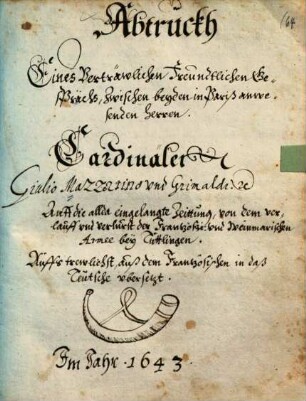 164
Abtruckh
Eines Verträwlichen Freundtlichen Ge-
sprächs, zwischen beyden in Pariß anwe-
senden Herren.
Cardinalen
Giulio Mazzarino und Grimaldi
Auff die allda eingelangte Zeittung, von dem ver-
lauff und verlurst der Frantzösisch und Weinmarischen
Armee bey Tuttlingen.
Auffs trewlichst, auß dem Frantzösischen in das
Teütsche ubersetzt.
Im Jahr 1643.